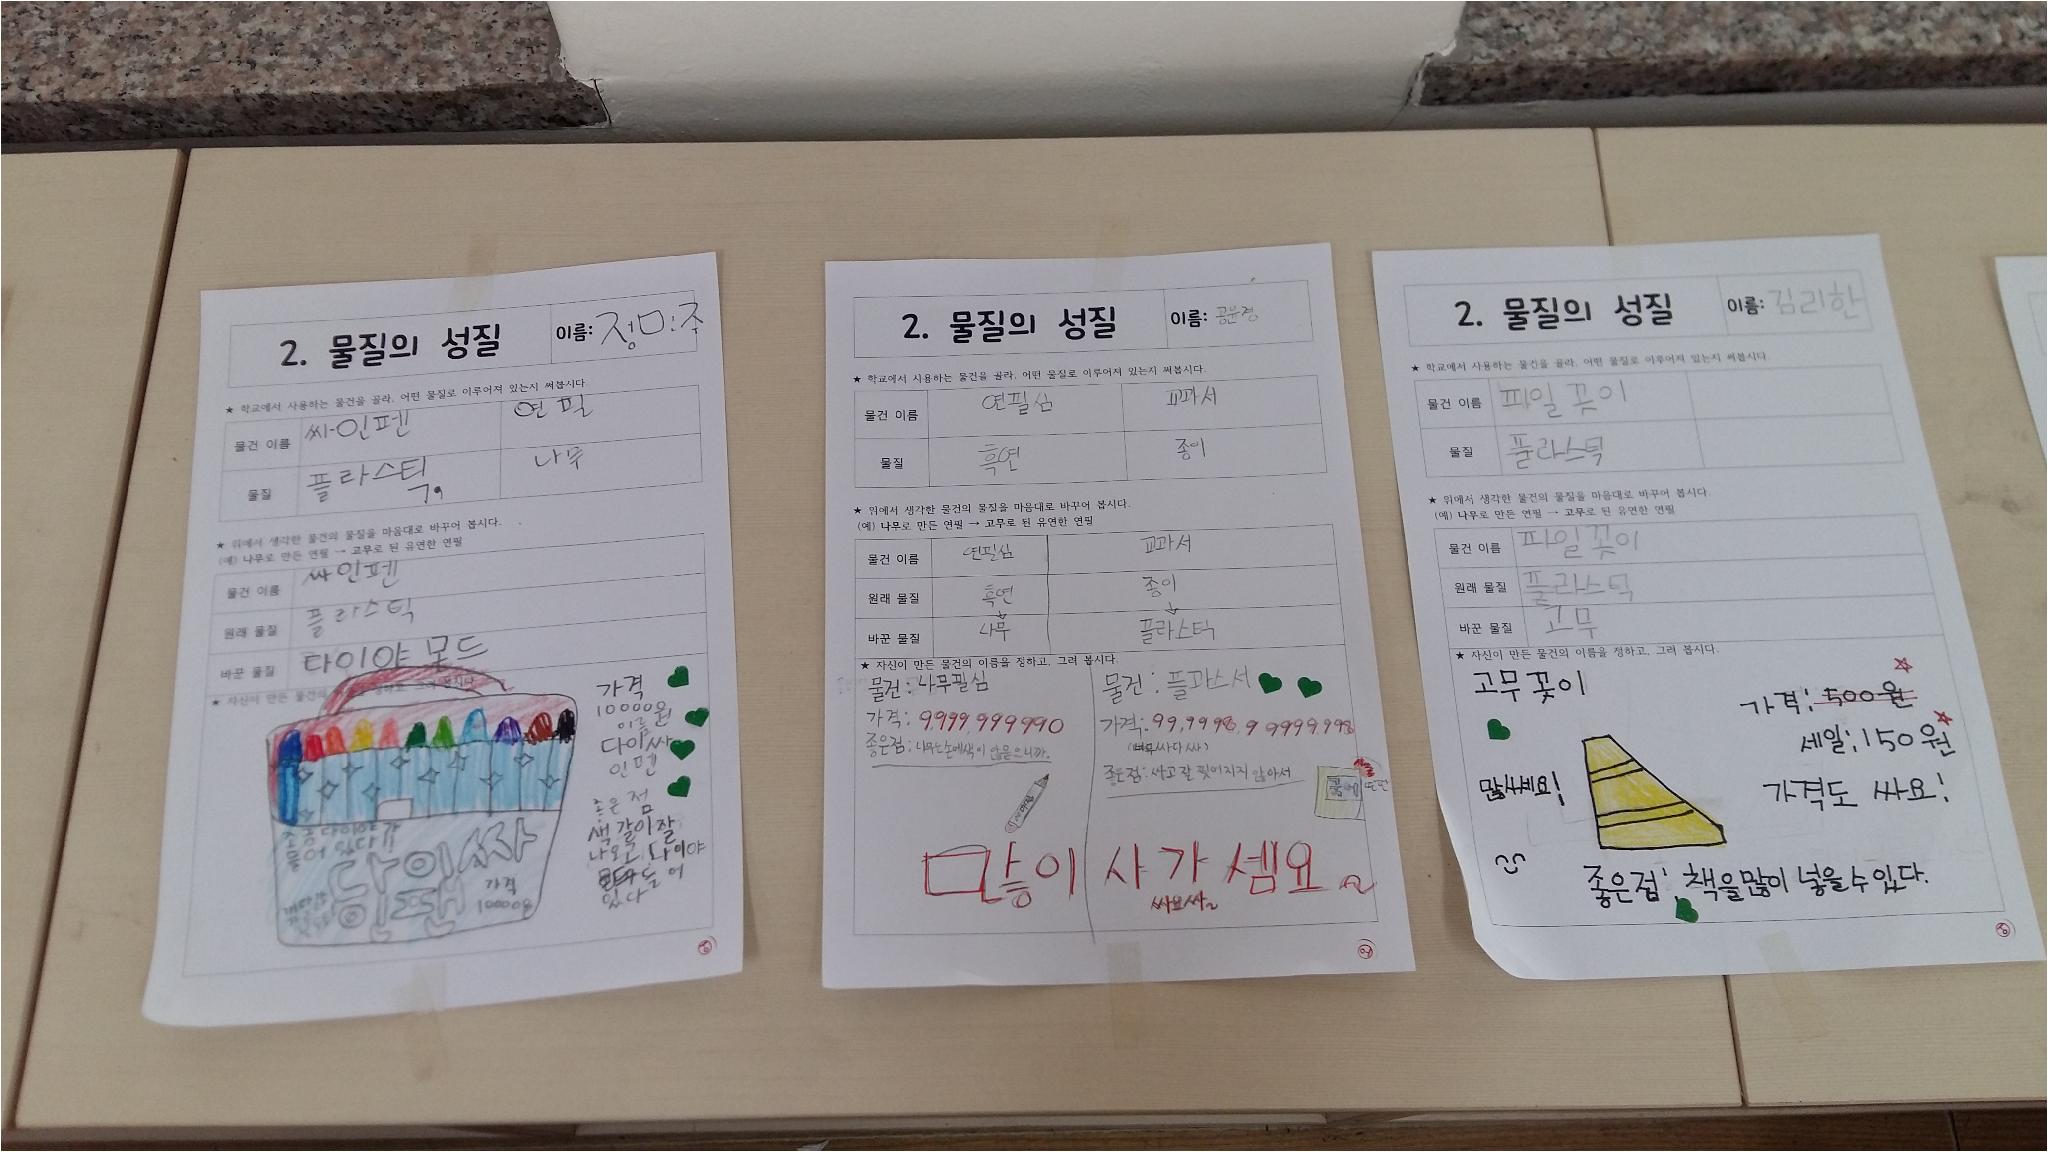 2. 물질의 성질
이름: 정민주
★ 학교에서 사용하는 물건을 골라, 어떤 물질로 이루어져 있는지 써봅시다.
물건 이름 싸인펜 연필
물질 플라스틱 나무
★ 위에서 생각한 물건의 물질을 마음대로 바꾸어 봅시다.
(예) 나무로 만든 연필 → 고무로 된 유연한 연필
물건 이름 싸인펜
원래 물질 플라스틱
바꾼 물질 다이야몬드
★ 자신이 만든 물건의 그려 봅시다.
가격
10000원
이름
다이싸
인펜
좋은 점
색갈이잘
나오고 다이야
들어
있다
다이싸
인펜
가격
10000원
2. 물질의 성질
이름: 공윤경
★ 학교에서 사용하는 물건을 골라, 어떤 물질로 이루어져 있는지 써봅시다.
물건 이름 연필심 교과서
물질 흑연 종이
★ 위에서 생각한 물건의 물질을 마음대로 바꾸어 봅시다.
(예) 나무로 만든 연필 → 고무로 된 유연한 연필
물건 이름 연필심 교과서
원래 물질 흑연 종이
바꾼 물질 나무 플라스틱
★ 자신이 만든 물건의 이름을 정하고, 그려 봅시다.
물건: 나무필심
가격: 9999,999990
좋은점: 나무는손에색이 않묻으니까.
물건: 플과스서
가격: 99,9998,99999,998
(너무싸다싸)
좋은점: 싸고 잘 찢어지지 않아서
많이 사가셈요~
싸요싸~
2. 물질의 성질
이름: 김리한
★ 학교에서 사용하는 물건을 골라, 어떤 물질로 이루어져 있는지 써봅시다.
물건 이름 파일꽂이
물질 플라스틱
★ 위에서 생각한 물건의 물질을 마음대로 바꾸어 봅시다.
(예) 나무로 만든 연필 → 고무로 된 유연한 연필
물건 이름 파일꽂이
원래 물질 플라스틱
바꾼 물질 고무
★ 자신이 만든 물건의 이름을 정하고, 그려 봅시다.
고무꽂이
가격: 500원
세일: 150원
많사세요!
가격도 싸요!
좋은점: 책을많이 넣을수있다.